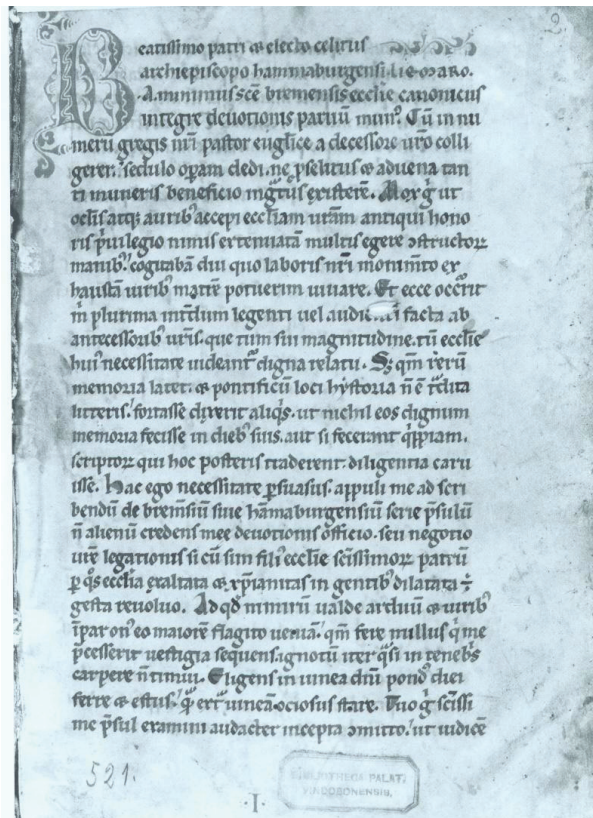 2.
Beatissimo patri & electo celitus
archiepiscopo hammaburgensi lıeomaro.
A. minimus scē bremensis ecclie canonicus
integre deuotionis paruū mun᾽. Cū in nu
merū gregis nr̄i pastor euglice a decessore uro colli
gerer: sedulo operam dedi. ne pselitus & aduena tan
ti muneris beneficio ingtus existerē. Mox g̊ ut
oclis atq; aurib᾽ accepi eccliam urām antiqui hono
ris p̄uilegio nimis extenuatā multis egere ɔstructoꝝ
manib᾽. cogitabā diu quo laboris nr̄i monimto ex
haustā uirib᾽ matrē potuerim iuuare. Et ecce occr̄it
m̄ plurima int̄dum legenti uel audienti facta ab
antecessorib᾽ ur̄is. que tum sui magnitudine. tū ecclie
hui᾽ necessitate uideant᾽ digna relatu. S; qm̄ rerū
memoria latet. & pontificū loci hystoria n̄ ē t̄dita
litteris. fortasse dixerit aliq̄s. ut nichil eos dignum
memoria fecisse in dieb᾽ suis. aut si fecerunt q̄ppiam.
scriptoꝝ qui hoc posteris traderent. diligentia caru
issē. Hac ego necessitate ꝑsuasus. appuli me ad scri
bendū de bremsiū siue hāmaburgensiū serie p̄sulū
n̄ alienū credens mee deuotionis officio. seu negotio
ur̄e legationis si cū sim fili᾽ ecclie scīssimoꝝ patrū
ꝑ q̊s ecclīa exaltata & xp̄ianitas in gentib᾽ dilatata ÷
gesta reuoluo. Ad qd̄ nimirū ualde arduū & uirib᾽
īpar on᾽ eo maiorē flagito ueniā. qm̄ fere nullus q̄ me
p̄cesserit uestigia sequens. ignotū iter q̄si in teneb̄s
carpere n̄ timui. Eligens in uinea dn̄i pond᾽ diei
ferre & estus. q̄ ext̄ uineā ociosus stare. Tuo g̊ scīssi
me p̄sul examini audacter incepta ɔmitto. ut iudicē
521.
·I·
BIBLIOTHECA PALAT.
VINDOBONENSIS.